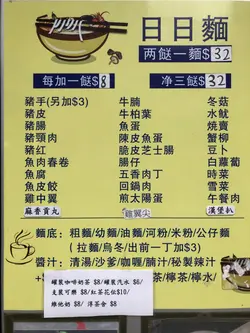 日日麵
两餸一麵$32
每加一餸$8
净三餸$32
豬手(另加$3)
豬皮
豬腸
豬頸肉
豬紅
魚肉春卷
魚腐
魚皮餃
雞中翼
麻香貢丸
牛腩
牛柏葉
魚蛋
陳皮魚蛋
脆皮芝士腸
腸仔
五香肉丁
回鍋肉
煎太陽蛋
雞翼尖
冬菇
水魷
燒賣
蟹柳
豆卜
白蘿蔔
時菜
雪菜
午餐肉
漢堡扒
麵底：粗麵/幼麵/油麵/河粉/米粉/公仔麵
(拉麵/烏冬/出前一丁加$3)
醬汁：清湯/沙爹/咖喱/腩汁/秘製辣汁
茶/檸茶/檸水/
罐裝咖啡奶茶 $8/罐裝汽水 $6/
支裝可樂 $8/紅茶花佐$10/
維他奶 $8/ 洋茶會 $8